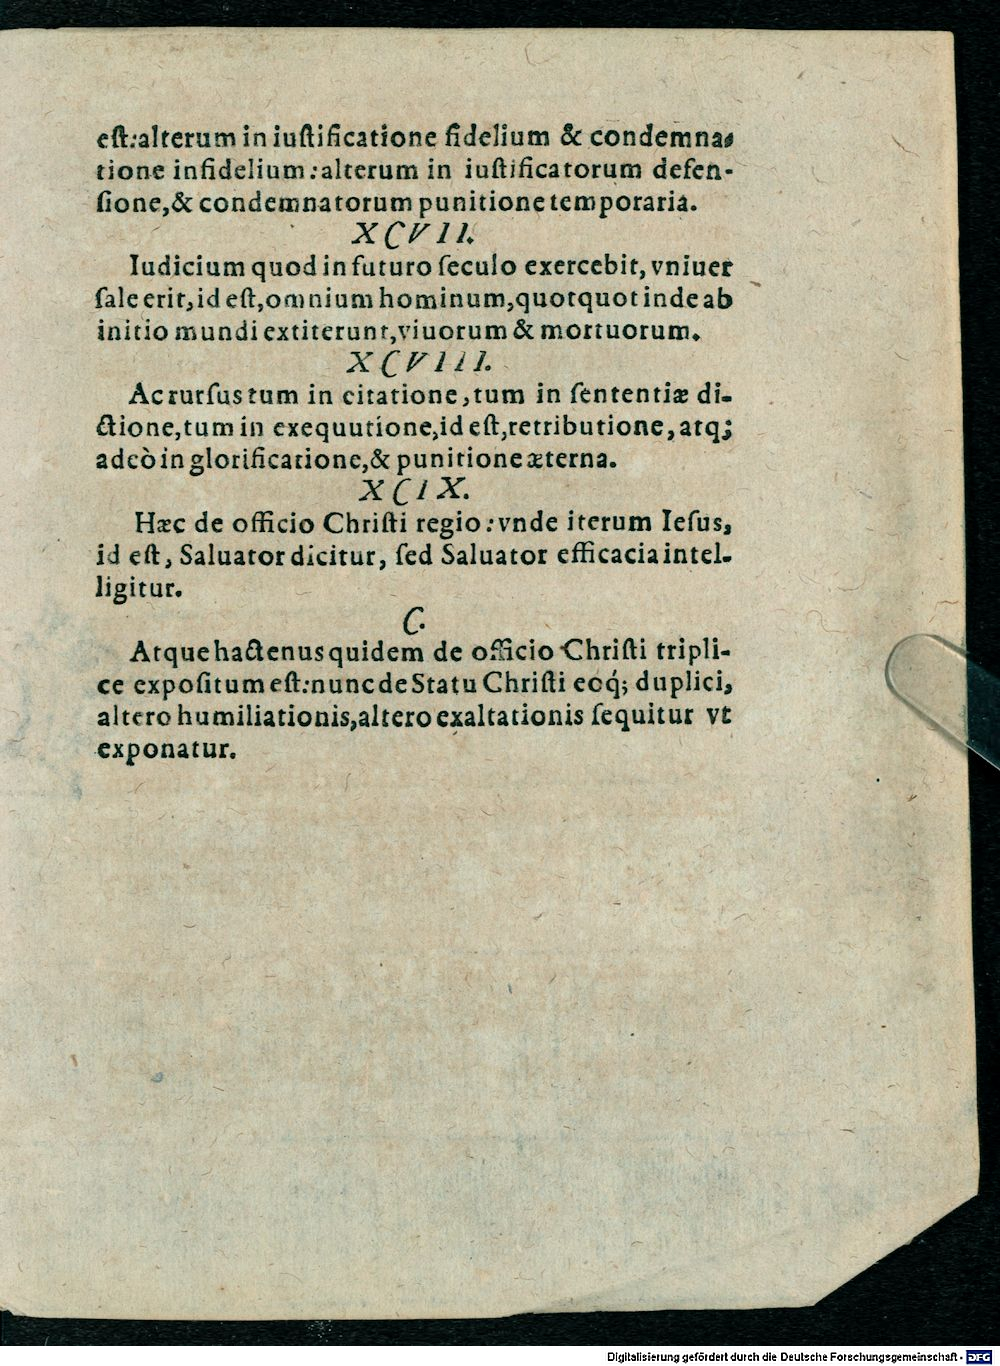 eſt: alterum in iuſtificatione fidelium & condemna-
tione infidelium: alterum in iuſtificatorum defen-
ſione, & condemnatorum punitione temporaria.
XCVII.
Iudicium quod in futuro ſeculo exercebit, vniuer
ſale erit, id eſt, omnium hominum, quotquot inde ab
initio mundi extiterunt, viuorum & mortuorum.
XCVIII.
Ac rurſus tum in citatione, tum in ſententiæ di-
ctione, tum in exequutione, id eſt, retributione, atq;
adeò in glorificatione, & punitione æterna.
XCIX.
Hæc de officio Chriſti regio: vnde iterum Ieſus,
id eſt, Saluator dicitur, ſed Saluator efficacia intel-
ligitur.
C.
Atque hactenus quidem de officio Chriſti tripli-
ce expoſitum eſt: nunc de Statu Chriſti eoq́; duplici,
altero humiliationis, altero exaltationis ſequitur vt
exponatur.
Digitalisierung gefördert durch die Deutsche Forschungsgemeinschaft - DFG